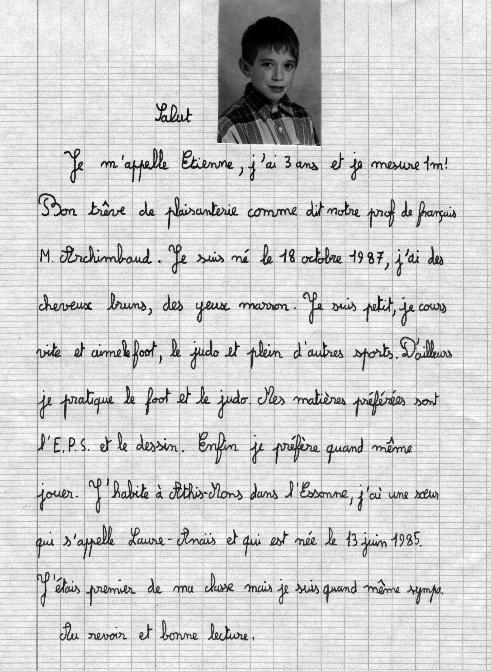 Salut
Je m'appelle Etienne, j'ai 3 ans et je mesure 1m!
Bon trêve de plaisanterie comme dit notre prof de français
M. Archimbaud. Je suis né le 18 octobre 1987, j'ai des
cheveux bruns, des yeux marron. Je suis petit, je cours
vite et aime le foot, le judo et plein d'autres sports. D'ailleurs
je pratique le foot et le judo. Mes matières préférées sont
l'E.P.S. et le dessin. Enfin je préfère quand même
jouer. J'habite à Athis-Mons dans l'Essonne, j'ai une sœur
qui s'appelle Laure-Anaïs et qui est née le 13 juin 1985.
J'étais premier de ma classe mais je suis quand même sympa.
Au revoir et bonne lecture.